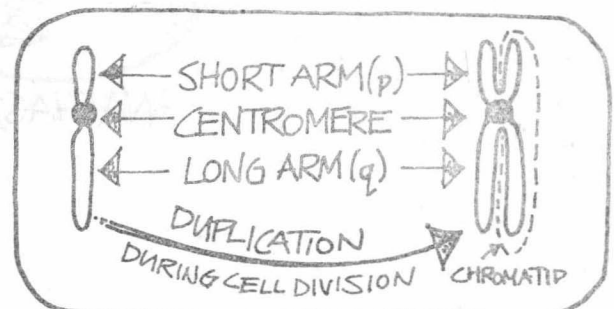 SHORT ARM (p)
CENTROMERE
LONG ARM (q)
DUPLICATION
DURING CELL DIVISION
CHROMATID